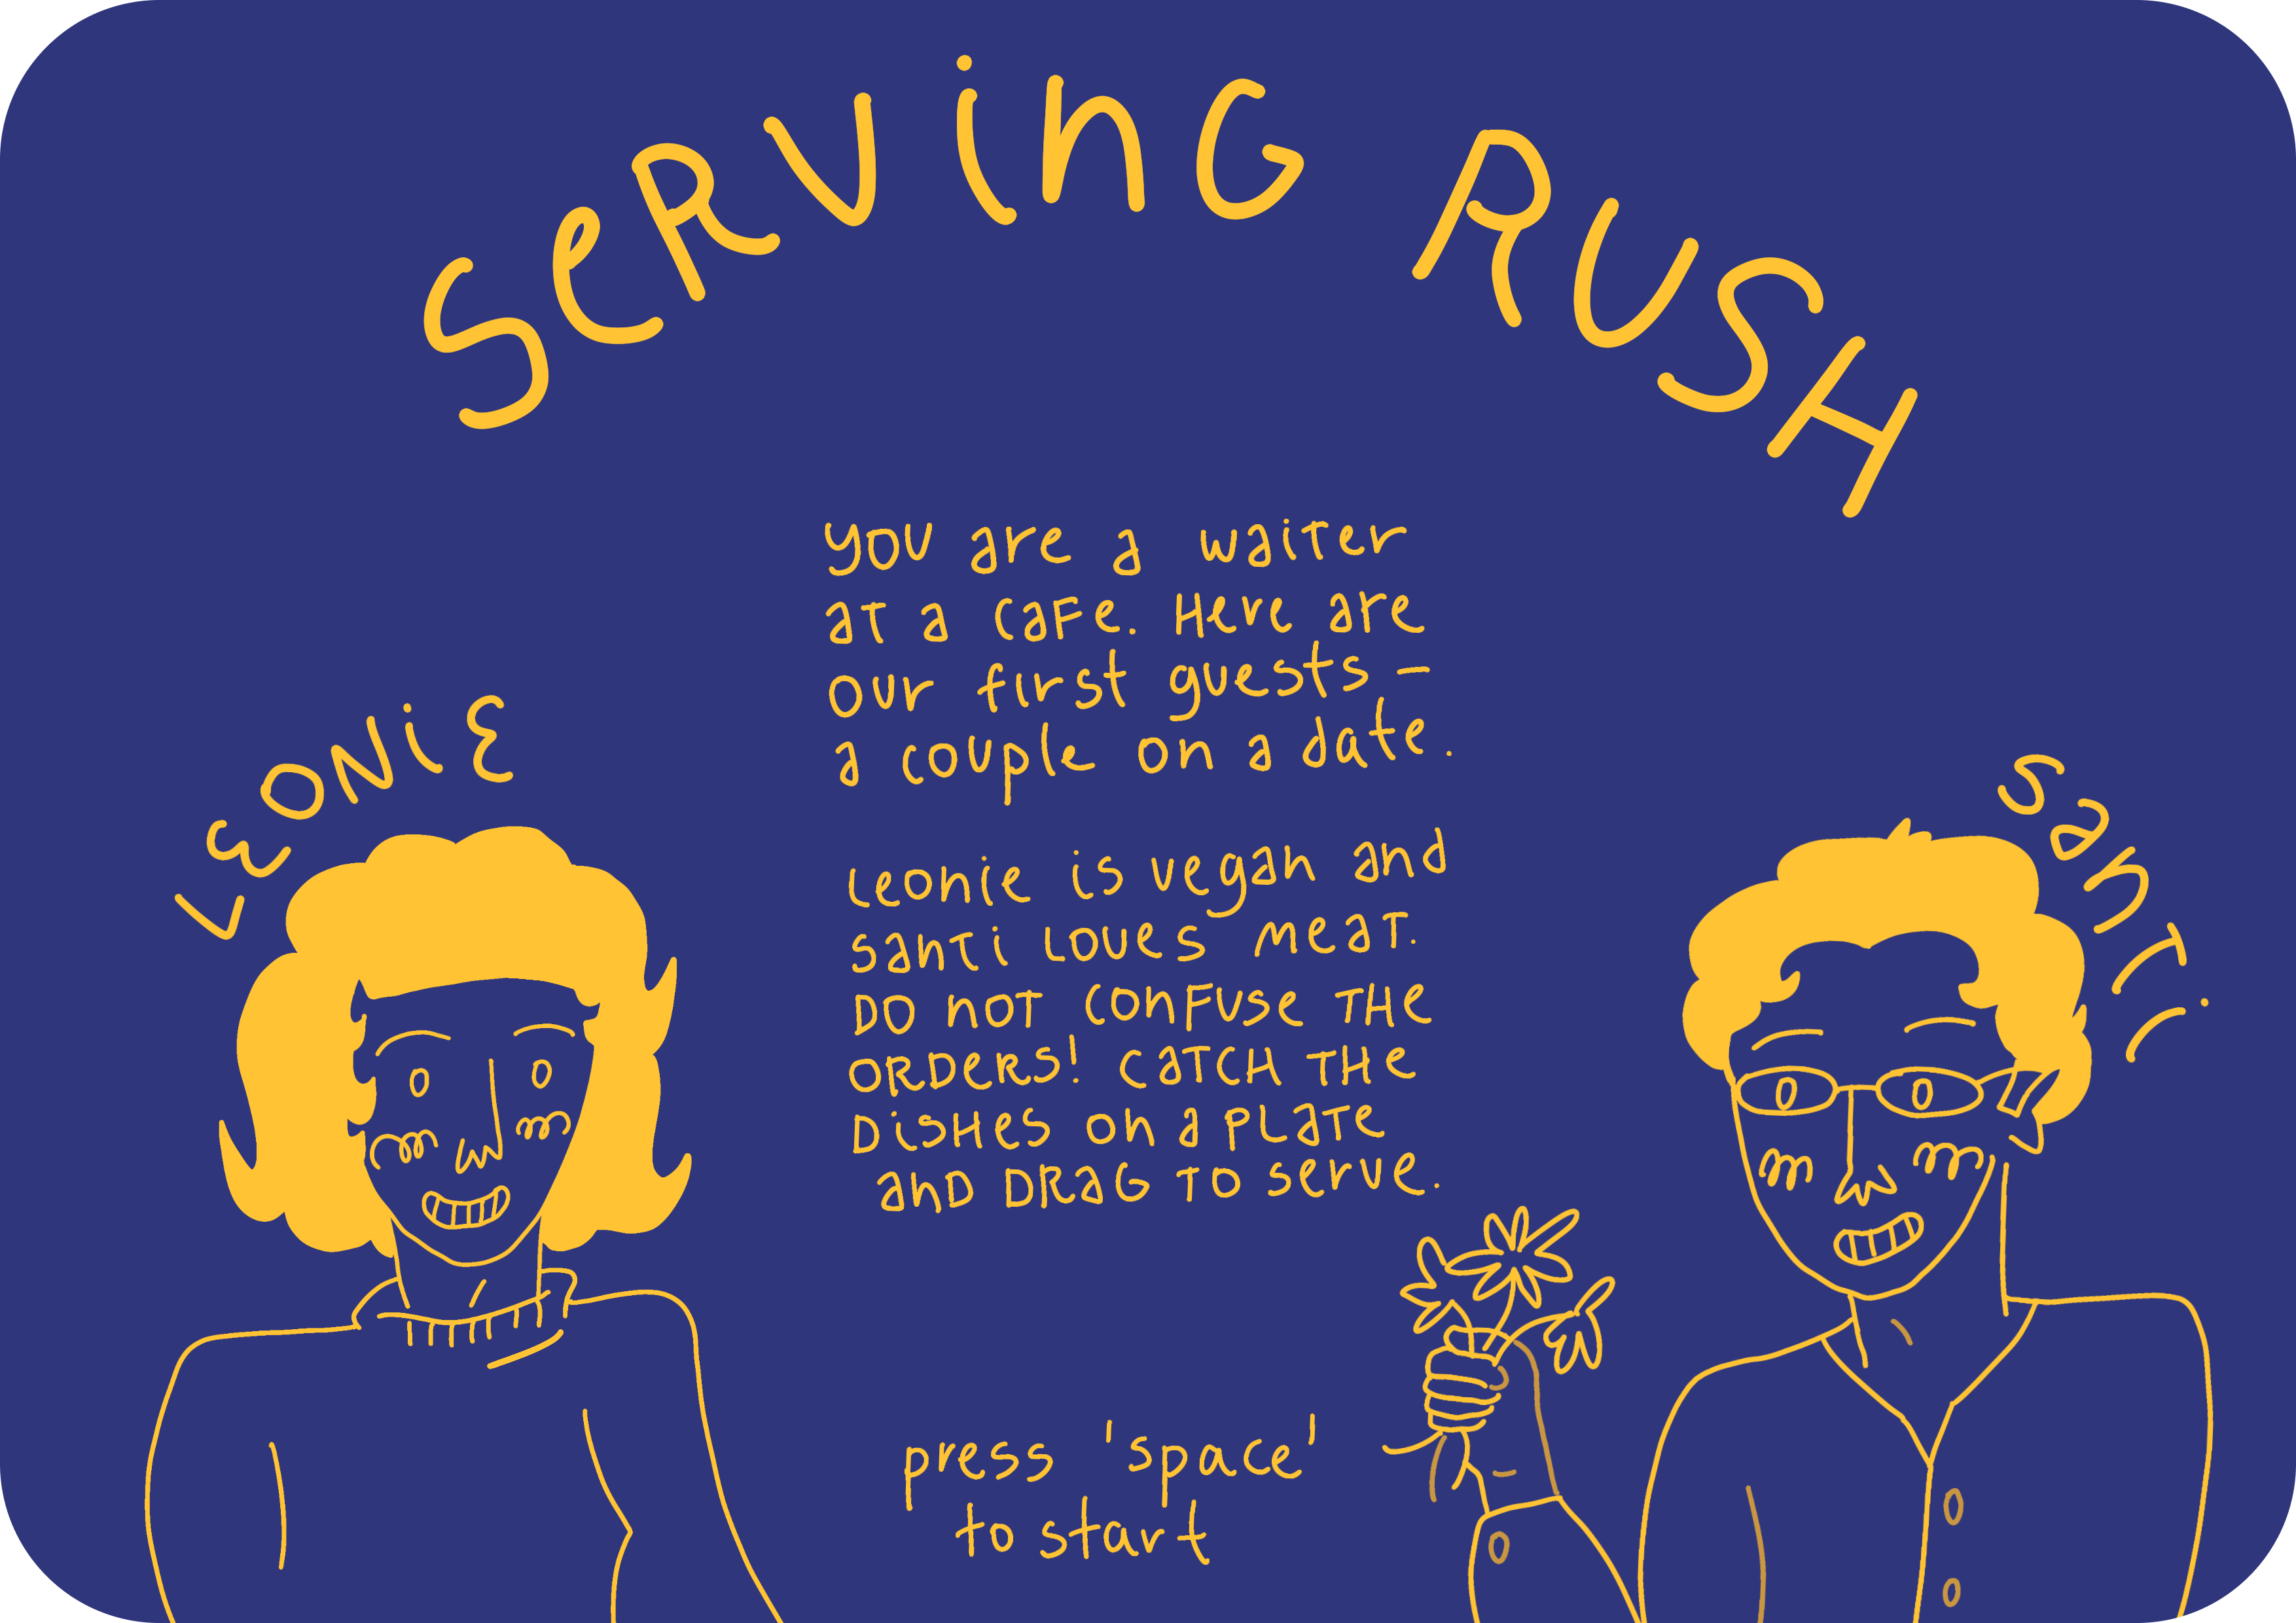 SeRViNG RUSH
you are a waiter
at a cafe. Here are
our first guests –
a couple on a date.
LEONiE
SanTi
Leonie is vegan and
santi loves meat.
Do not confuse the
orders! Catch the
dishes on a plate
and drag to serve.
press 'space'
to start